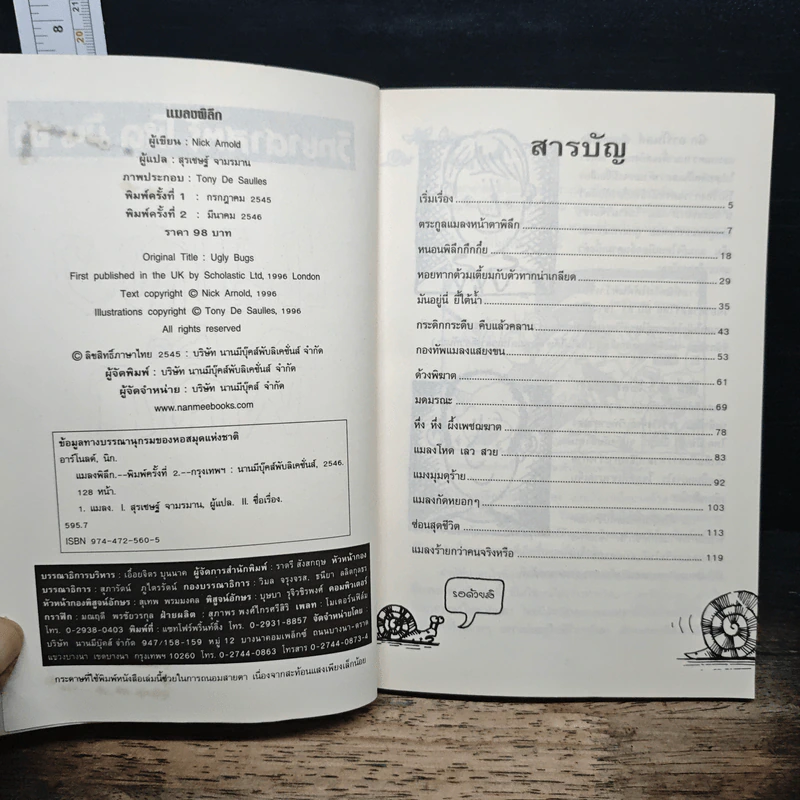 8
21
20
แมลงพิลึก
ผู้เขียน : Nick Arnold
ผู้แปล : สุรเชษฐ์ จามรมาน
ภาพประกอบ : Tony De Saulles
พิมพ์ครั้งที่ 1 : กรกฎาคม 2545
พิมพ์ครั้งที่ 2 : มีนาคม 2546
ราคา 98 บาท
Original Title : Ugly Bugs
First published in the UK by Scholastic Ltd, 1996 London
Text copyright © Nick Arnold, 1996
Illustrations copyright © Tony De Saulles, 1996
All rights reserved
© ลิขสิทธิ์ภาษาไทย 2545 : บริษัท นานมีบุ๊คส์พับลิเคชั่นส์ จำกัด
ผู้จัดพิมพ์ : บริษัท นานมีบุ๊คส์พับลิเคชั่นส์ จำกัด
ผู้จัดจำหน่าย : บริษัท นานมีบุ๊คส์ จำกัด
www.nanmeebooks.com
ข้อมูลทางบรรณานุกรมของหอสมุดแห่งชาติ
อาร์โนลด์, นิก.
แมลงพิลึก.--พิมพ์ครั้งที่ 2.--กรุงเทพฯ : นานมีบุ๊คส์พับลิเคชั่นส์, 2546.
128 หน้า.
1. แมลง. I. สุรเชษฐ์ จามรมาน, ผู้แปล. II. ชื่อเรื่อง.
595.7
ISBN 974-472-560-5
บรรณาธิการบริหาร : เอื้อยจิตร บุนนาค ผู้จัดการสำนักพิมพ์ : ราตรี สังสกฤษ หัวหน้ากอง
บรรณาธิการ : สุภารัตน์ ภูไตรรัตน์ กองบรรณาธิการ : วิมล จรุงจรส. ธนียา ลลิตกุลธร
หัวหน้ากองพิสูจน์อักษร : สุเทพ พรมมงคล พิสูจน์อักษร : บุษบา รุจิวชิรพงศ์ คอมพิวเตอร์
กราฟิก : มณฤดี พรชัยวรกุล ฝ่ายผลิต : สุภาพร พงศ์ไกรศรีสิริ เพลท : โมเดอร์นฟิล์ม
โทร. 0-2938-0403 พิมพ์ที่ : แซทโฟร์พริ้นท์ติ้ง โทร. 0-2931-8857 จัดจำหน่ายโดย :
บริษัท นานมีบุ๊คส์ จำกัด 947/158-159 หมู่ 12 บางนาคอมเพล็กซ์ ถนนบางนา-ตราด
แขวงบางนา เขตบางนา กรุงเทพฯ 10260 โทร. 0-2744-0863 โทรสาร 0-2744-0873-4
กระดาษที่ใช้พิมพ์หนังสือเล่มนี้ช่วยในการถนอมสายตา เนื่องจากสะท้อนแสงเพียงเล็กน้อย
สารบัญ
เริ่มเรื่อง 5
ตระกูลแมลงหน้าตาพิลึก 7
หนอนพิลึกกึกกือ 18
หอยทากต้วมเตี้ยมกับตัวทากน่าเกลียด 29
มันอยู่นี่ ยี้ใต้น้ำ 35
กระดิกกระดืบ คืบแล้วคลาน 43
กองทัพแมลงแสยงขน 53
ด้วงพิฆาต 61
มดมรณะ 69
หึ่ง หึ่ง ผึ้งเพชฌฆาต 78
แมลงโหด เลว สวย 83
แมงมุมดุร้าย 92
แมลงกัดหยอกๆ 103
ซ่อนสุดชีวิต 113
แมลงร้ายกว่าคนจริงหรือ 119
รอด้วยสิ